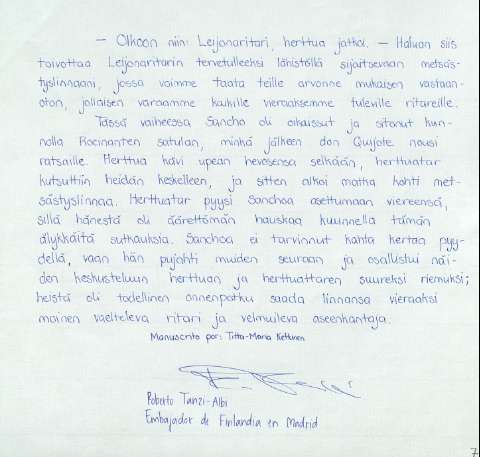 — Olkoon niin: Leijonaritari, herttua jatkoi. — Haluan siis
toivottaa Leijonaritarin tervetulleeksi lähistöllä sijaitsevaan metsäs-
tyslinnaani, jossa voimme taata teille arvonne mukaisen vastaan-
oton, jollaisen varaamme kaikille vieraaksemme tuleville ritareille.
Tässä vaiheessa Sancho oli oikaissut ja sitonut kun-
nolla Rocinanten satulan, minkä jälkeen don Quijote nousi
ratsaille. Herttua kävi upean hevosensa selkään, herttuatar
kutsuttiin heidän keskelleen, ja sitten alkoi matka kohti met-
sästyslinnaa. Herttuatar pyysi Sanchoa asettumaan viereensä,
sillä hänestä oli äärettömän hauskaa kuunnella tämän
älykkäitä sutkauksia. Sanchoa ei tarvinnut kahta kertaa pyy-
dellä, vaan hän pujahti muiden seuraan ja osallistui näi-
den keskusteluun herttuan ja herttuattaren suureksi riemuksi;
heistä oli todellinen onnenpotku saada linnansa vieraaksi
moinen vaelteleva ritari ja velmuileva aseenkantaja.
Manuscrito por: Titta-Maria Kettunen
Roberto Tanzi-Albi
Embajador de Finlandia en Madrid
7